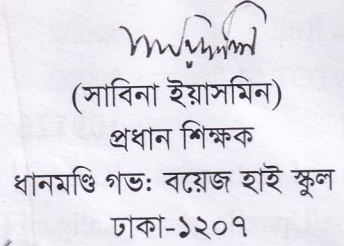 (সাবিনা ইয়াসমিন)
প্রধান শিক্ষক
ধানমণ্ডি গভঃ বয়েজ হাই স্কুল
ঢাকা-১২০৭